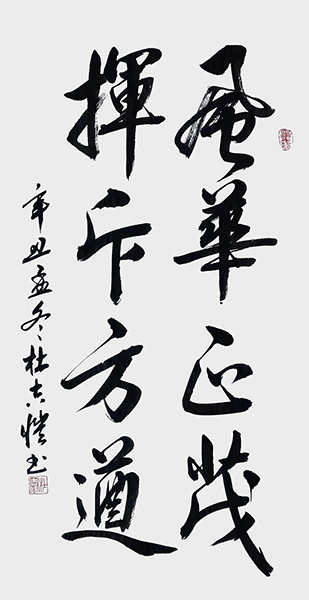 風華正茂
揮斥方遒
辛丑孟冬杜吉愷书